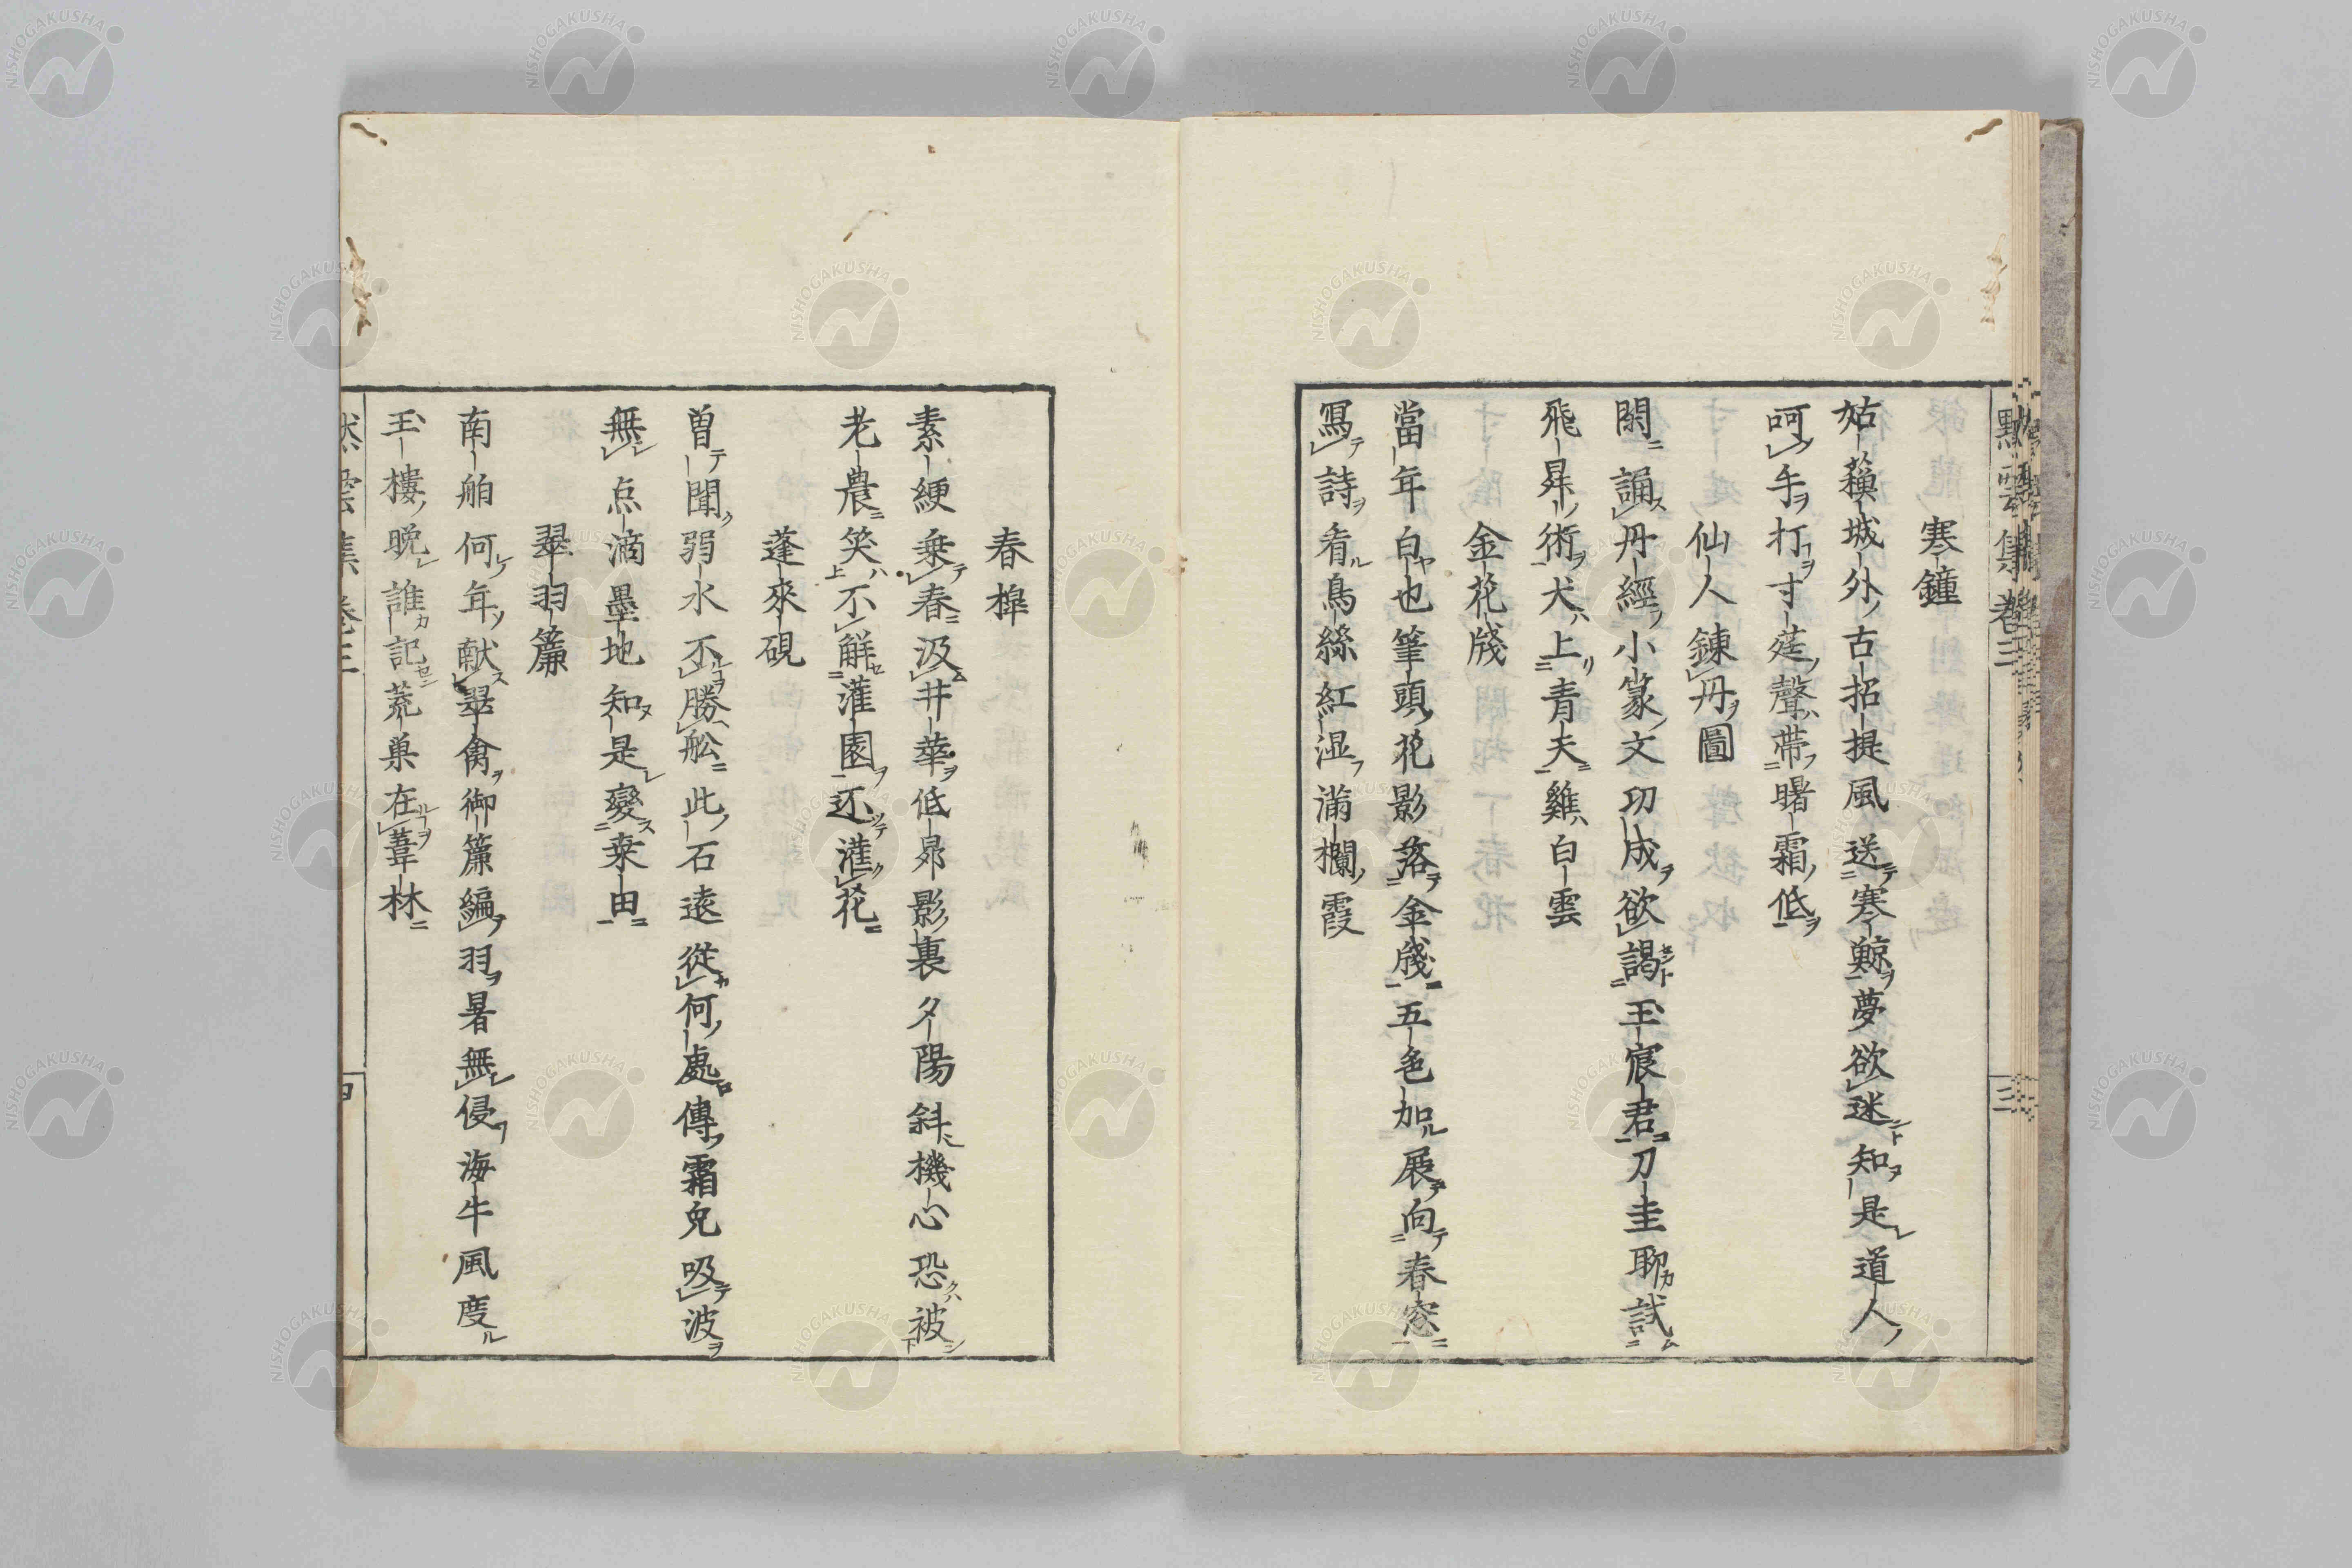 寒鐘
姑蘓城外古招提風送寒鯨夢欲迷知是道人
呵手打寸莛聲帯曙霜低
仙人錬丹圖
閑誦丹經小篆文功成欲謁玉宸君刀圭聊試
飛昇術犬上青天雞白雲
金花牋
當年白也筆頭花影落金牋五色加展向春窓
寫詩看鳥絲紅湿滿欄霞
春槹
素綆乗春汲井華低昻影裏夕陽斜機心恐被
老農笑不解灌園还灌花
蓬來硯
曽聞弱水不勝舩此石遠從何處傳霜兎吸波
無点滴墨地知是變桒由
翠羽簾
南舶何年献翠禽御簾編羽暑無侵海牛風度
玉樓晩誰記荒巣在葦林
集卷三
三
NISHOGAKUSHA